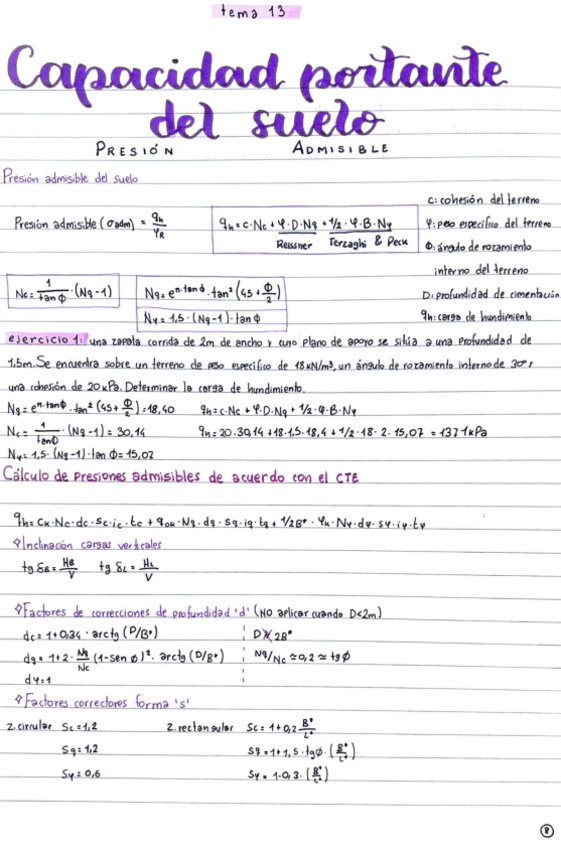 tema 13
Capacidad portante
del suelo
PRESIÓN ADMISIBLE
Presión admisible del suelo
c: cohesión del terreno
Presión admisible (σadm) = qh/φR
qh = c·Nc + φ·D·Nq + 1/2·φ·B·Nγ
φ: peso específico del terreno
Reissner Terzaghi & Peck
Φ: ángulo de rozamiento
interno del terreno
Nc = 1/tanΦ · (Nq-1)
Nq = e^π·tanΦ · tan²(45 + Φ/2)
D: profundidad de cimentación
Nγ = 1,5 · (Nq-1) · tan Φ
qh: carga de hundimiento
ejercicio 1: una zapata corrida de 2m de ancho y cuyo plano de apoyo se sitúa a una profundidad de
1,5m. Se encuentra sobre un terreno de peso específico de 18kN/m³, un ángulo de rozamiento interno de 30º y
una cohesión de 20kPa. Determinar la carga de hundimiento.
Nq = e^π·tanΦ · tan²(45 + Φ/2) = 18,40 qh = c·Nc + φ·D·Nq + 1/2·φ·B·Nγ
Nc = 1/tanΦ · (Nq-1) = 30,14 qh = 20·30,14 + 18·1,5·18,4 + 1/2·18·2·15,07 = 1371kPa
Nγ = 1,5·(Nq-1)·tan Φ = 15,07
Cálculo de presiones admisibles de acuerdo con el CTE
qh = Ck·Nc·dc·sc·ic·tc + qok·Nq·dq·sq·iq·tq + 1/2B*·φk·Nγ·dγ·sγ·iγ·tγ
Inclinación cargas verticales
tg δB = HB/V tg δL = HL/V
Factores de correcciones de profundidad 'd' (NO aplicar cuando D<2m)
dc = 1+0,34 · arctg (D/B*) D≯2B*
dq = 1+2 · Nq/Nc (1-sen φ)² · arctg (D/B*) Nq/Nc ≃ 0,2 ≃ tg φ
dγ = 1
Factores correctores forma 's'
z. circular Sc = 1,2 z. rectangular Sc = 1+0,2 B*/L*
Sq = 1,2 Sq = 1+1,5·tgφ·(B*/L*)
Sγ = 0,6 Sγ = 1-0,3·(B*/L*)
8